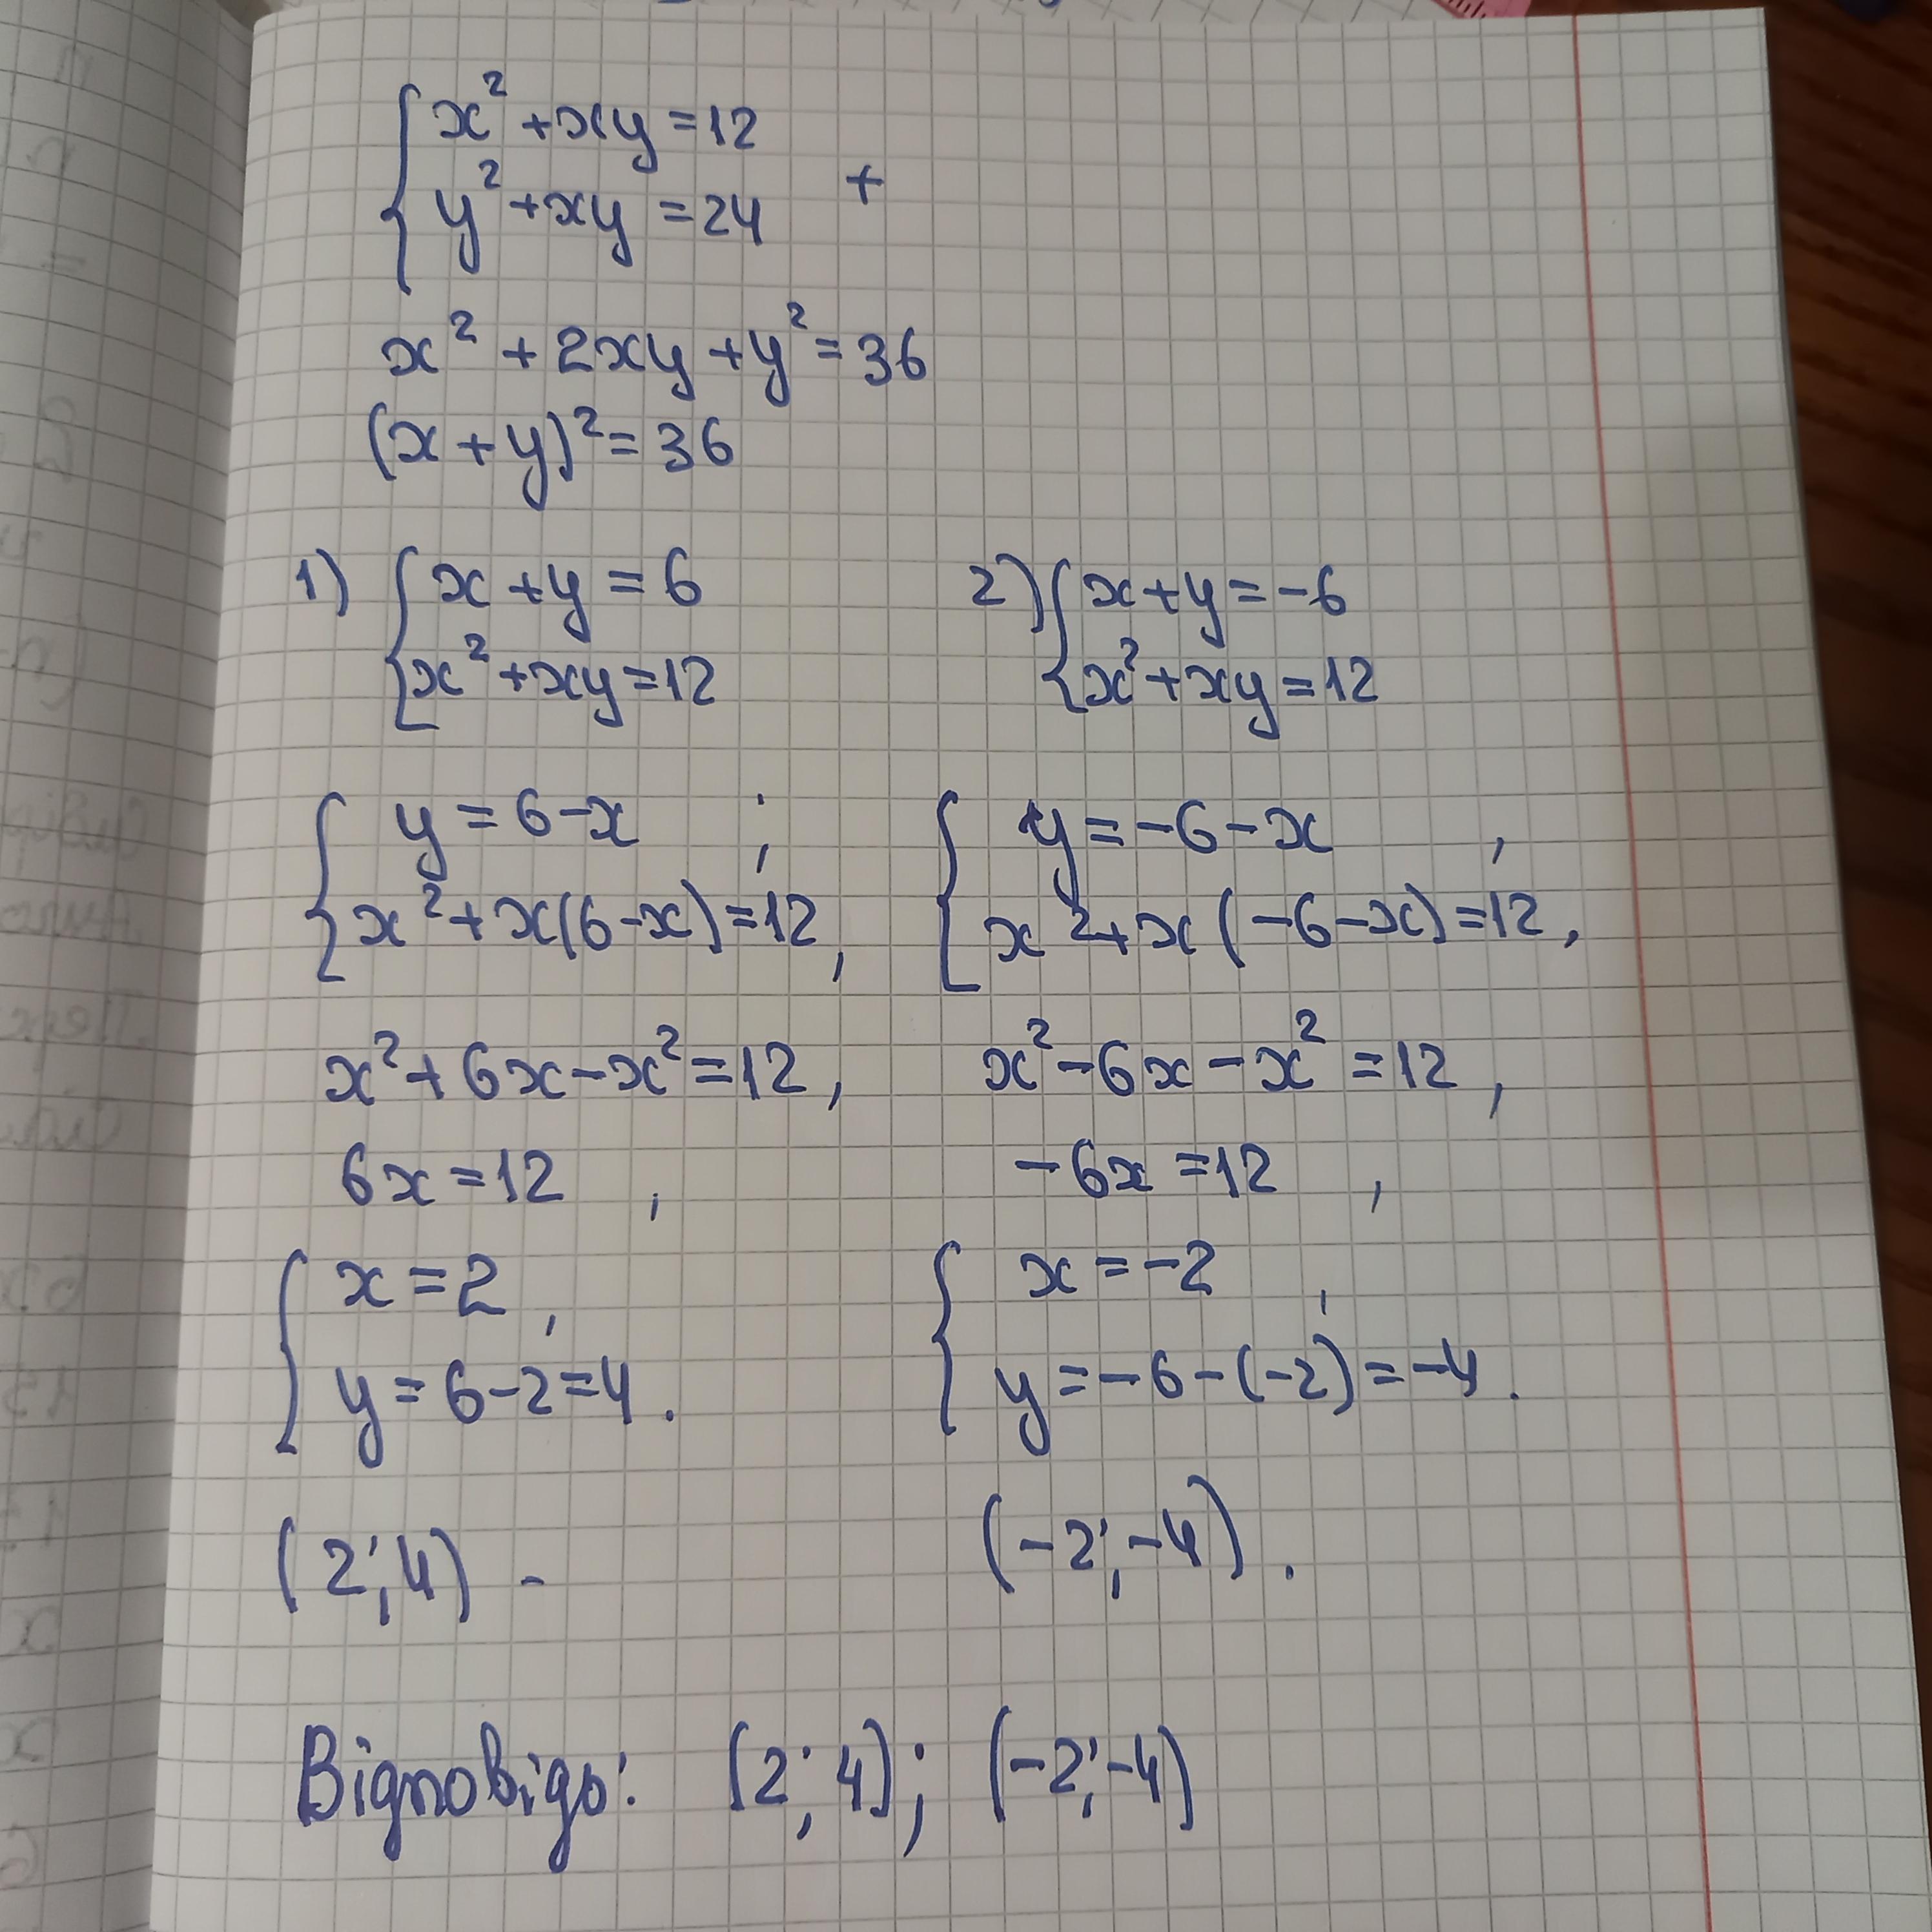 x² + xy = 12
y² + xy = 24 +
x² + 2xy + y² = 36
(x + y)² = 36
1) x + y = 6
x² + xy = 12
y = 6 - x ;
x² + x(6 - x) = 12,
x² + 6x - x² = 12,
6x = 12 ,
x = 2,
y = 6 - 2 = 4.
(2; 4) -
2) x + y = -6
x² + xy = 12
y = -6 - x ,
x² + x(-6 - x) = 12,
x² - 6x - x² = 12,
-6x = 12 ,
x = -2 ,
y = -6 - (-2) = -4.
(-2; -4).
Відповідь: (2; 4); (-2; -4)